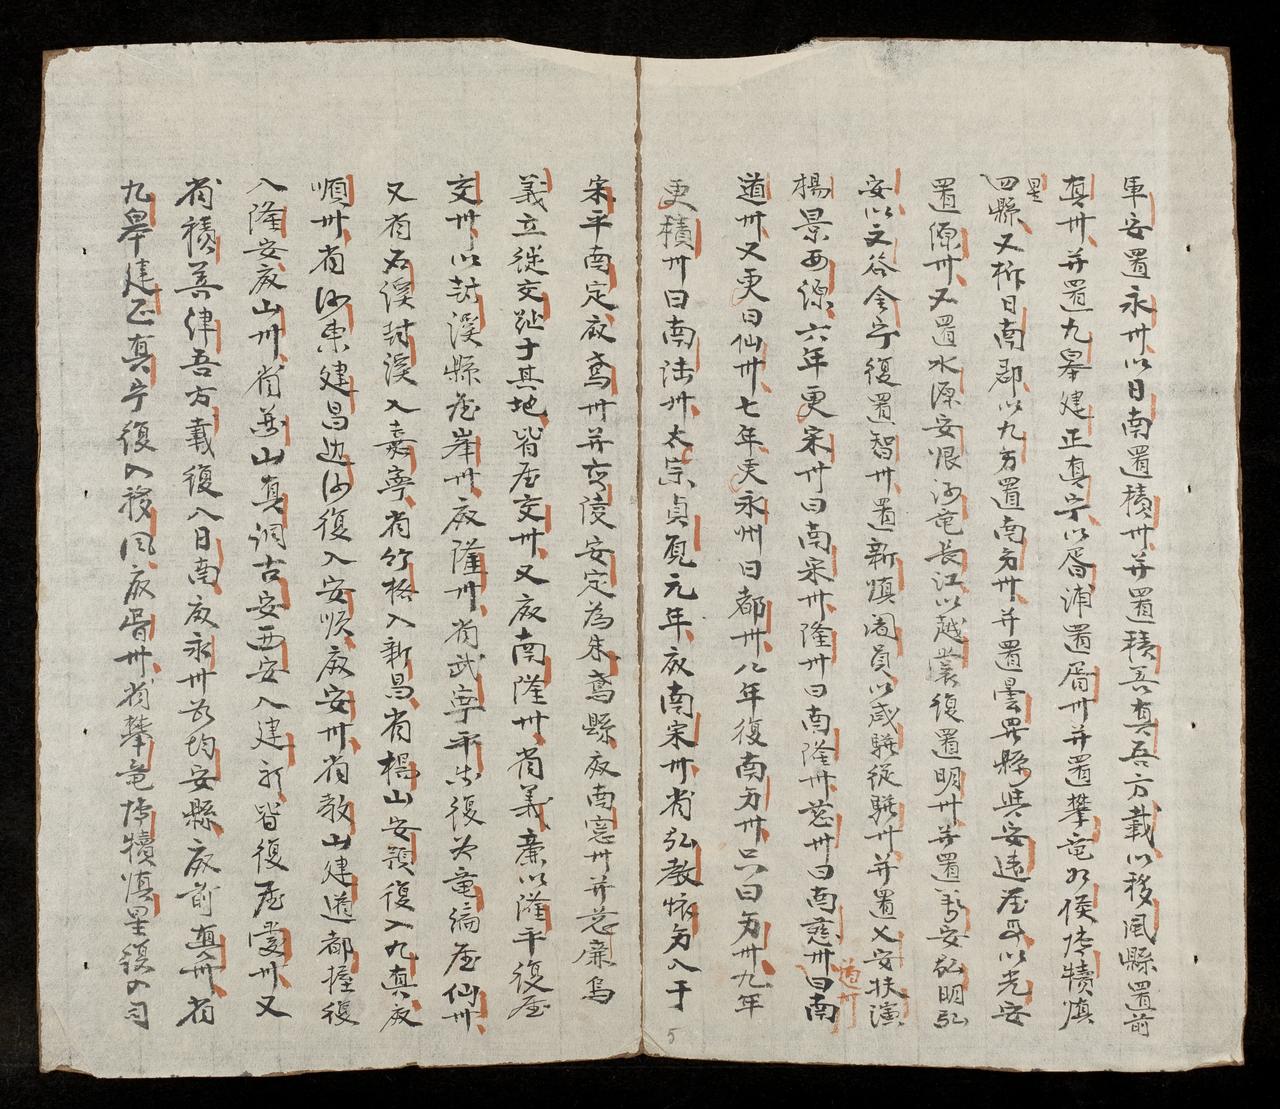 軍安置永州以日南置積州并置積善真吾方載以移風縣置前
真州并置九皋建正真宁以胥浦置胥州并置攀竜如侯博犢鎮星
四縣又析日南郡以九方置南方州并置曇畀縣與安遠屋耳以光安
置源州又置水源安恨河竜長江以越裳復置明州并置萬安弘明弘
安以文谷金宁復置智州置新鎮阇員以咸驩従驩州并置乂安扶演
楊景西源六年更宋州曰南宋州隆州曰南隆州慈州曰南慈州曰南道州
道州又更曰仙州七年更永州曰都州八年復南方州只曰方州九年
更積州曰南陆州太宗貞觀元年廢南宋州省弘教懷方入于
宋平南定廢鳶州并省陵安定為朱鳶縣廢南慈州并慈廉烏
義立従交趾于其地皆屋交州又廢南隆州省義廉以隆平復屋
交州以封溪縣屋峯州廢隆州省武寧平出復为竜編屋仙州
又省石溪封溪入嘉寧省竹格入新昌省楊山安預復入九真廢
順州省河東建昌边河復入安順廢安州省教山建道都握復
入隆安廢山州省萬山真润古安西安入建初皆復屋愛州又
省積善津吾方載復入日南廢永州茲均安縣廢前真州省
九皋建正真宁復入移風廢胥州省攀竜博犢鎮星復入司